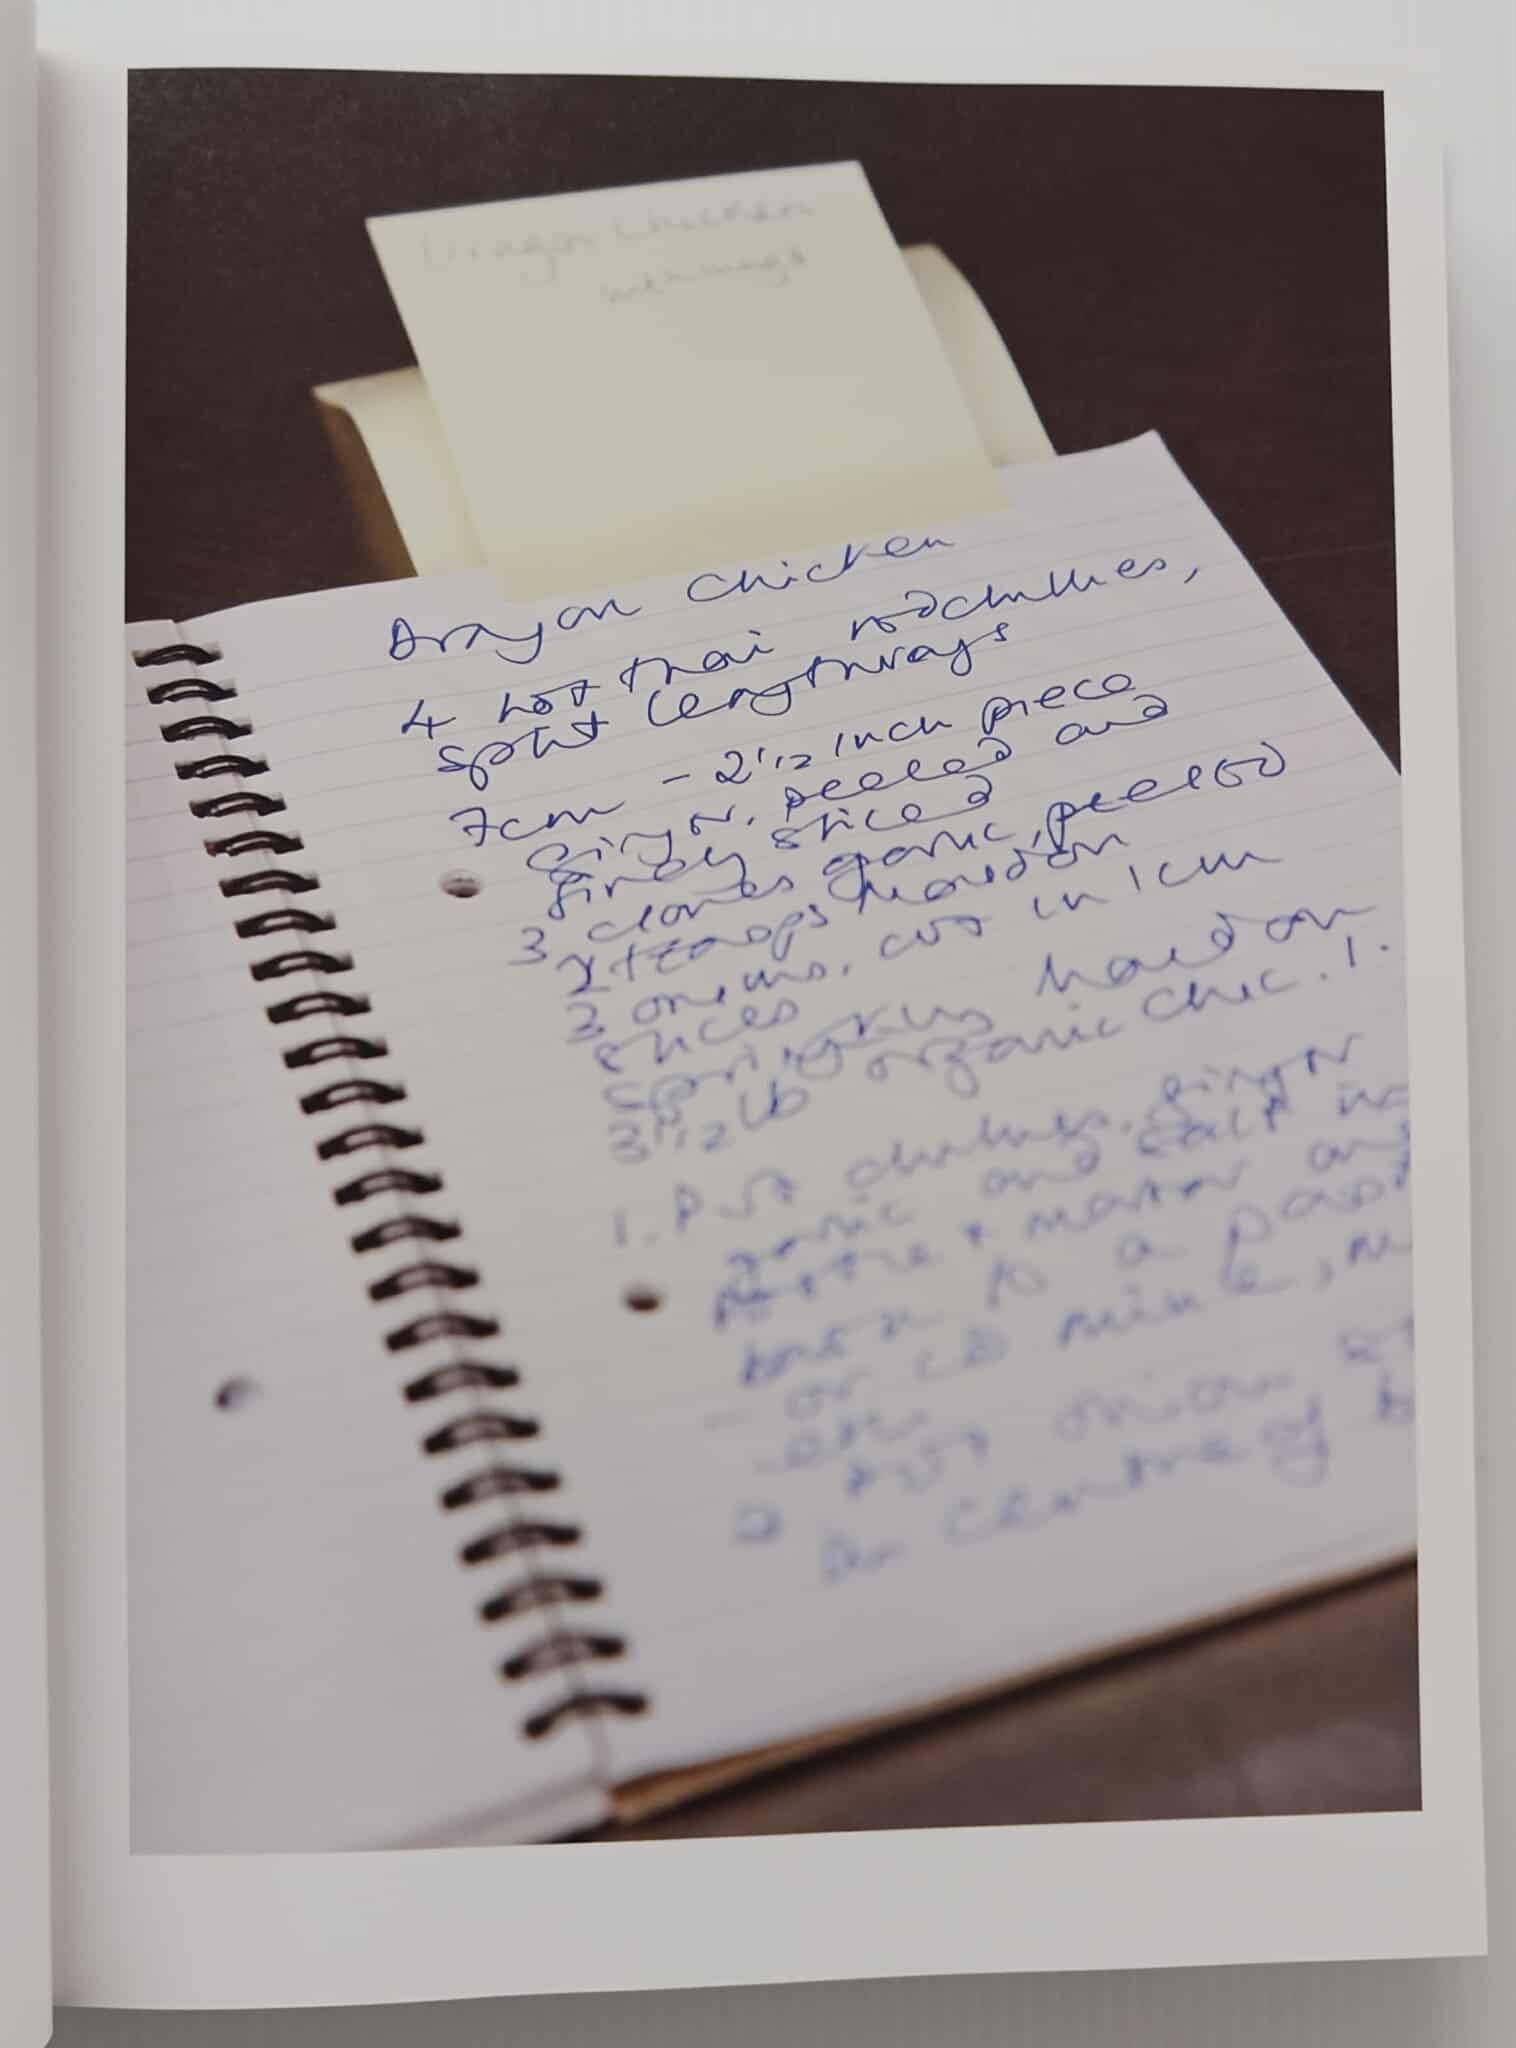 Dragon Chicken
Dragon Chicken
4 hot thai red chillies,
split lengthways
7cm - 2 1/2 inch piece
ginger, peeled and
finely sliced
3 cloves garlic, peeled
2 teasps Maldon
2 onions, cut in 1cm
slices
3 1/2 lb organic chic.
1. Put chillies, ginger
garlic and salt in
pestle + mortar and
to a
- or
2 Put onion
in centre of